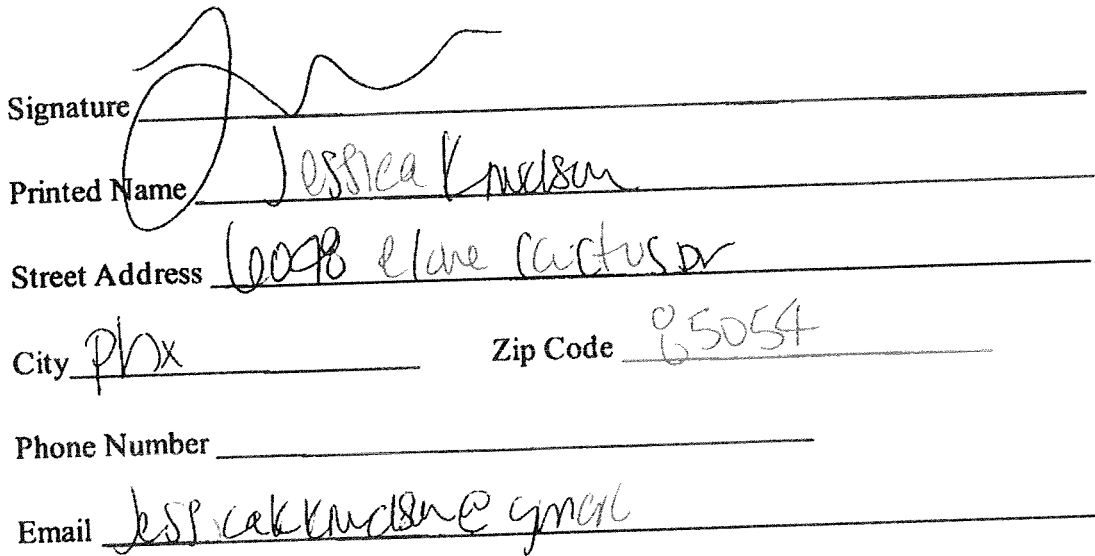 Signature
Printed Name Jessica Knudson
Street Address 6098 e lone cactus Dr
City Phx Zip Code 85054
Phone Number
Email Jessicakknudson@gmail